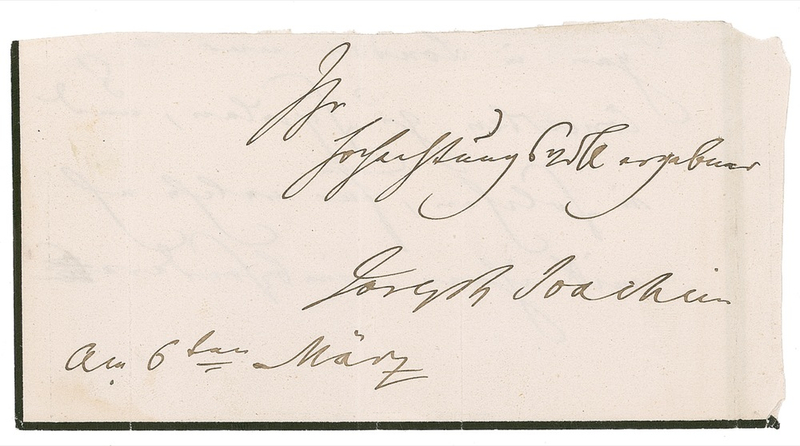 Ihr
hochachtungsvoll ergebener
Joseph Joachim
Am 6ten März